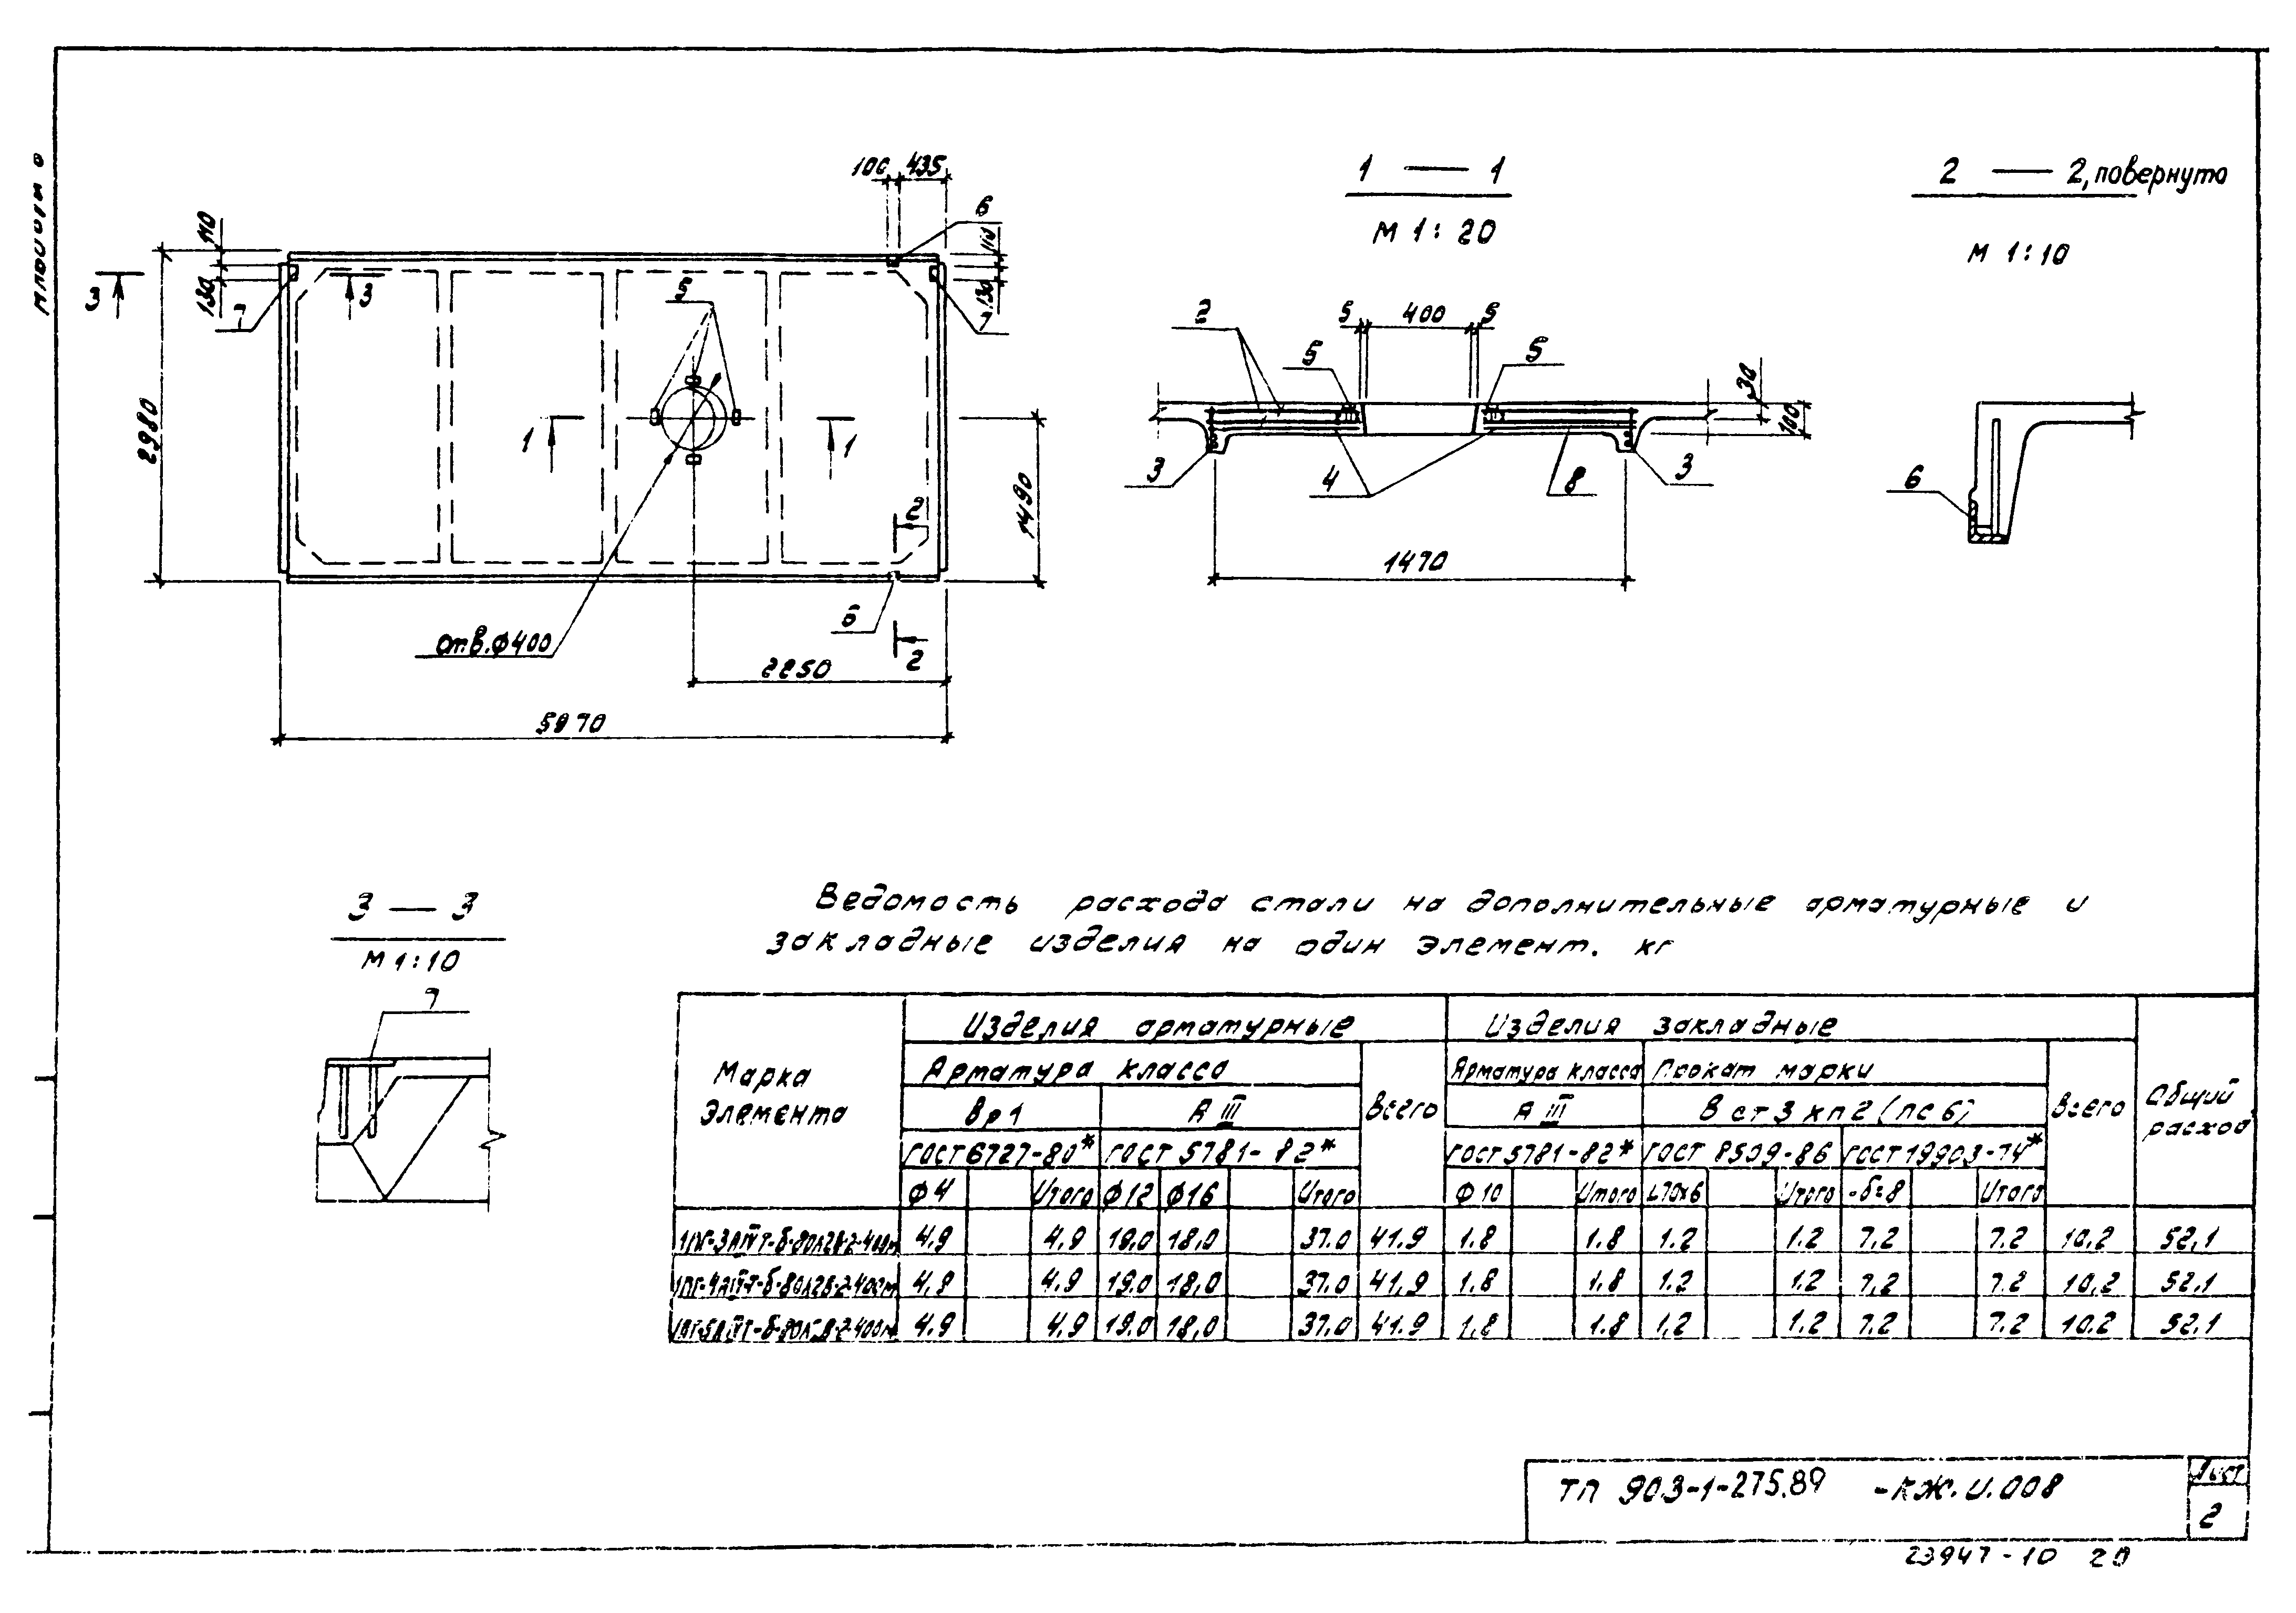 100 435
6
110
110
130
130
3
3
7
7
5
2980
1
1
1490
2
отв.ф400
6
2
2250
5970
1 — 1
М 1:20
2
5 400 5
5
5
30
100
3
4
8
3
1470
2 — 2, повернуто
М 1:10
6
3 — 3
М 1:10
7
Ведомость расхода стали на дополнительные арматурные и
закладные изделия на один элемент. кг
Марка элемента
Изделия арматурные
Изделия закладные
Общий расход
Арматура класса
Всего
Арматура класса
Прокат марки
Всего
Вр1
А III
А III
В ст 3 кп 2 (пс 6)
ГОСТ 6727-80*
ГОСТ 5781-82*
ГОСТ 5781-82*
ГОСТ 8509-86
ГОСТ 19903-74*
ф4 Итого ф12 ф16 Итого ф10 Итого ∟70х6 Итого -δ=8 Итого
1ПГ-3АIVТ-б-80Л2В-2-400м 4.9 4.9 19.0 18.0 37.0 41.9 1.8 1.8 1.2 1.2 7.2 7.2 10.2 52.1
1ПГ-4АIVТ-б-80Л2В-2-400м 4.9 4.9 19.0 18.0 37.0 41.9 1.8 1.8 1.2 1.2 7.2 7.2 10.2 52.1
4.9 4.9 19.0 18.0 37.0 41.9 1.8 1.8 1.2 1.2 7.2 7.2 10.2 52.1
ТП 903-1-275.89 -КЖ.И.008
Лист
2
23947-10 20